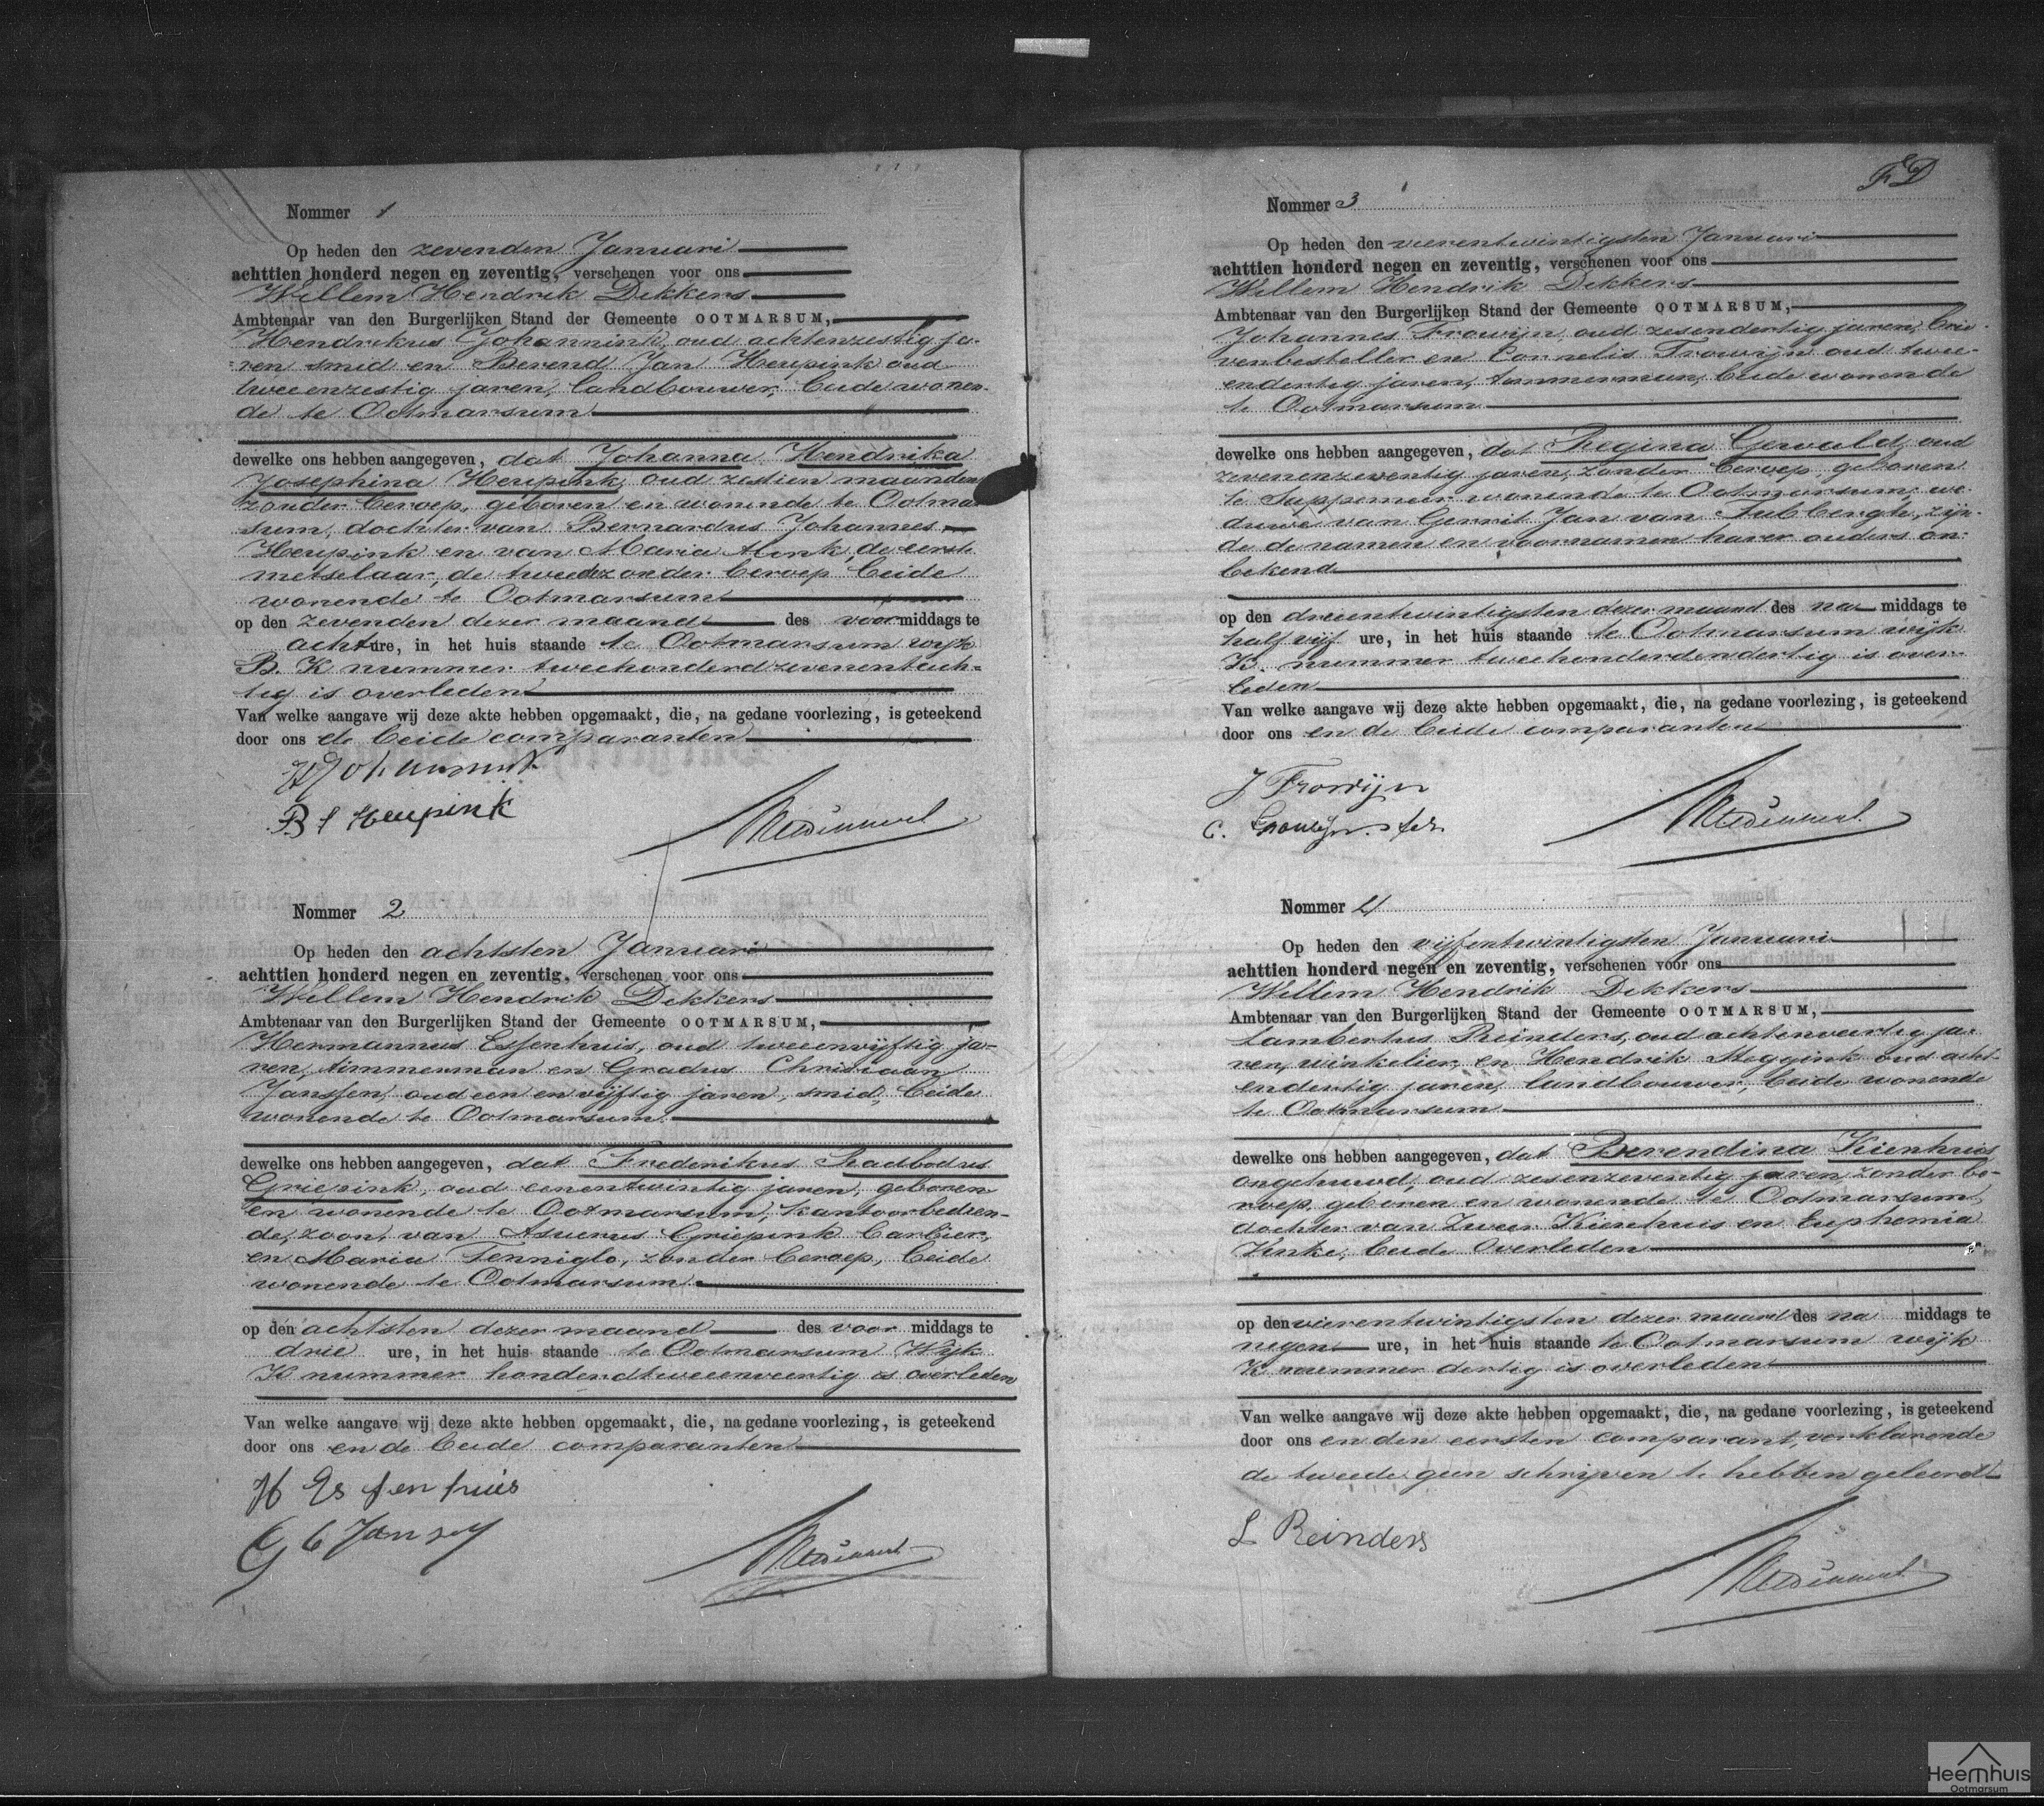 Nommer 1
Op heden den zevenden Januari
achttien honderd negen en zeventig, verschenen voor ons
Willem Hendrik Dekkers
Ambtenaar van den Burgerlijken Stand der Gemeente OOTMARSUM,
Hendrikus Johannink, oud achtenzestig ja-
ren smid en Berend Jan Heupink oud
tweeenzestig jaren, landbouwer, beide wonen-
de te Ootmarsum
dewelke ons hebben aangegeven, dat Johanna Hendrika
Josephina Heupink, oud zestien maanden
zonder beroep, geboren en wonende te Ootmar
sum, dochter van Bernardus Johannes
Heupink en van Maria Alink, de eerste
metselaar, de tweede zonder beroep beide
wonende te Ootmarsum
op den zevenden dezer maand des voormiddags te
acht ure, in het huis staande te Ootmarsum wijk
B. K nummer tweehonderdzevenentach-
tig is overleden
Van welke aangave wij deze akte hebben opgemaakt, die, na gedane voorlezing, is geteekend
door ons de beide comparanten
B J Heupink
Nommer 2
Op heden den achtsten Januari
achttien honderd negen en zeventig, verschenen voor ons
Willem Hendrik Dekkers
Ambtenaar van den Burgerlijken Stand der Gemeente OOTMARSUM,
Hermannus Essenhuis, oud tweeenvijftig ja-
ren, timmerman en Gradus Christiaan
Janssen, oud een en vijftig jaren, smid, beide
wonende te Ootmarsum
dewelke ons hebben aangegeven, dat Frederikus Radbodus
Griepink, oud eenentwintig jaren, geboren
en wonende te Ootmarsum, kantoorbedien-
de, zoon van Asuerus Griepink barbier,
en Maria Tenniglo, zonder beroep, beide
wonende te Ootmarsum
op den achtsten dezer maand des voor middags te
drie ure, in het huis staande te Ootmarsum Wijk
K nummer honderdtweeenveertig is overleden
Van welke aangave wij deze akte hebben opgemaakt, die, na gedane voorlezing, is geteekend
door ons en de beide comparanten
H Essenhuis
G C Jansen
FD
Nommer 3
Op heden den vierentwintigsten Januari
achttien honderd negen en zeventig, verschenen voor ons
Willem Hendrik Dekkers
Ambtenaar van den Burgerlijken Stand der Gemeente OOTMARSUM,
Johannes Frowijn, oud zesendertig jaren, brie-
venbesteller en Cornelis Frowijn oud twee-
endertig jaren, timmerman, beide wonende
te Ootmarsum
dewelke ons hebben aangegeven, dat Regina Gewald, oud
zevenenzeventig jaren, zonder beroep, geboren
te Sappemeer wonende te Ootmarsum, we-
duwe van Gerrit Jan van Aubbergh, zijn-
de de namen en voornamen harer ouders on-
bekend
op den drieentwintigsten dezer maand des na middags te
half vijf ure, in het huis staande te Ootmarsum wijk
K. nummer tweehonderdendertig is over-
leden
Van welke aangave wij deze akte hebben opgemaakt, die, na gedane voorlezing, is geteekend
door ons en de beide comparanten
J Frowijn
C. Frowijn
Nommer 4
Op heden den vijfentwintigsten Januari
achttien honderd negen en zeventig, verschenen voor ons
Willem Hendrik Dekkers
Ambtenaar van den Burgerlijken Stand der Gemeente OOTMARSUM,
Lambertus Reinders, oud achtenveertig ja-
ren, winkelier, en Hendrik Meggink oud acht-
endertig jaren, landbouwer, beide wonende
te Ootmarsum
dewelke ons hebben aangegeven, dat Berendina Kienhuis
ongehuwd, oud zesenzeventig jaren, zonder be-
roep, geboren en wonende te Ootmarsum,
dochter van Zweer Kienhuis en Euphemia
Vinke, beide overleden
op den vierentwintigsten dezer maand des na middags te
negen ure, in het huis staande te Ootmarsum wijk
K nummer dertig is overleden
Van welke aangave wij deze akte hebben opgemaakt, die, na gedane voorlezing, is geteekend
door ons en den eersten comparant, verklarende
de tweede geen schrijven te hebben geleerd
L Reinders
Heemhuis
Ootmarsum